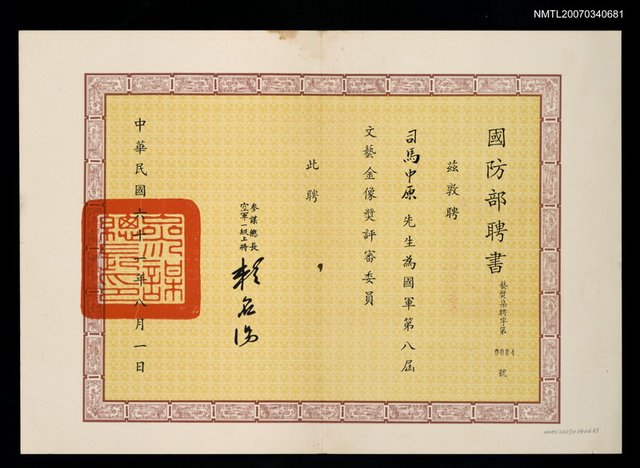 NMTL20070340681
國防部聘書
藝獎集聘字第 0024 號
茲敦聘
司馬中原先生為國軍第八屆
文藝金像獎評審委員
此聘
參謀總長
空軍一級上將
賴名湯
中華民國六十一年八月一日
NMTL20070340681